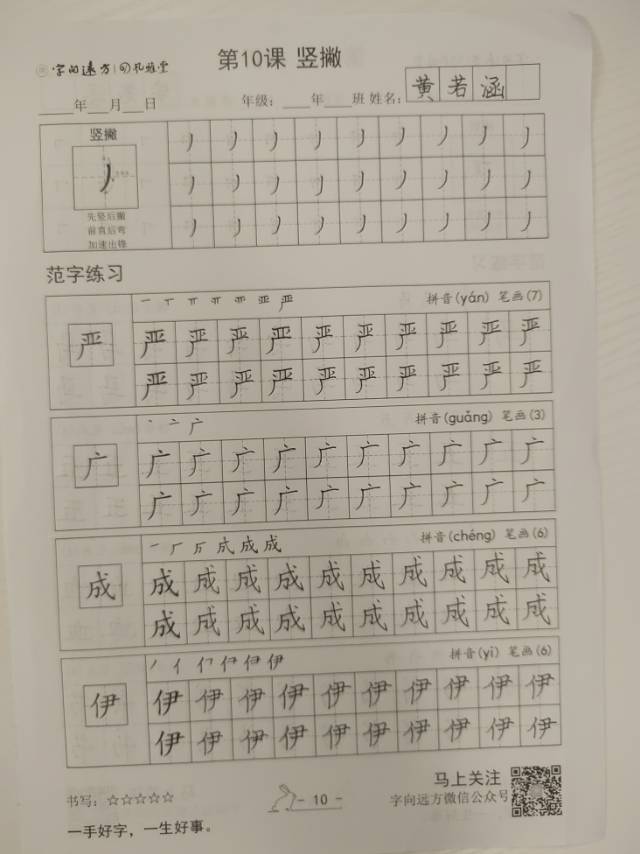 字向远方 | 孔雅堂
第10课 竖撇
____年___月___日 年级：____年____班 姓名：黄若涵
竖撇
先竖后撇
前直后弯
加速出锋
丿 丿 丿 丿 丿 丿 丿 丿 丿
丿 丿 丿 丿 丿 丿 丿 丿 丿
丿 丿 丿 丿 丿 丿 丿 丿 丿
范字练习
拼音(yán) 笔画(7)
严
严 严 严 严 严 严 严 严 严 严
严 严 严 严 严 严 严 严 严 严
拼音(guǎng) 笔画(3)
广
广 广 广 广 广 广 广 广 广 广
广 广 广 广 广 广 广 广 广 广
拼音(chéng) 笔画(6)
成
成 成 成 成 成 成 成 成 成 成
成 成 成 成 成 成 成 成 成 成
拼音(yī) 笔画(6)
伊
伊 伊 伊 伊 伊 伊 伊 伊 伊 伊
伊 伊 伊 伊 伊 伊 伊 伊 伊 伊
书写：☆☆☆☆☆
- 10 -
马上关注
字向远方微信公众号
一手好字，一生好事。